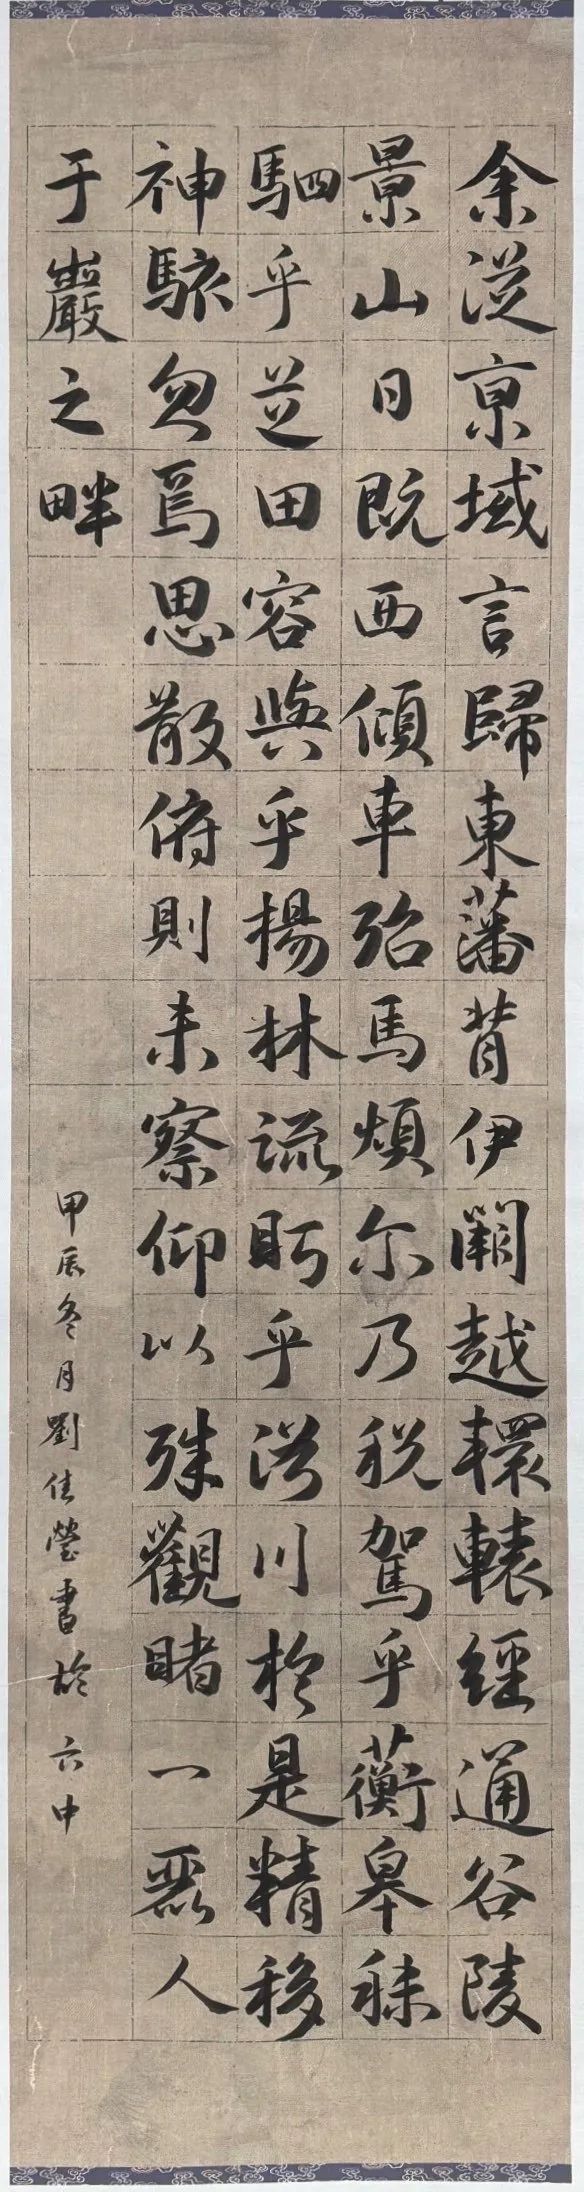 余從京域言歸東藩背伊闕越轘轅經通谷陵
景山日既西傾車殆馬煩尔乃税駕乎蘅皋秣
駟乎芝田容與乎楊林流眄乎洛川於是精移
神駭忽焉思散俯則未察仰以殊觀睹一麗人
于巖之畔
甲辰冬月劉佳瑩書於六中